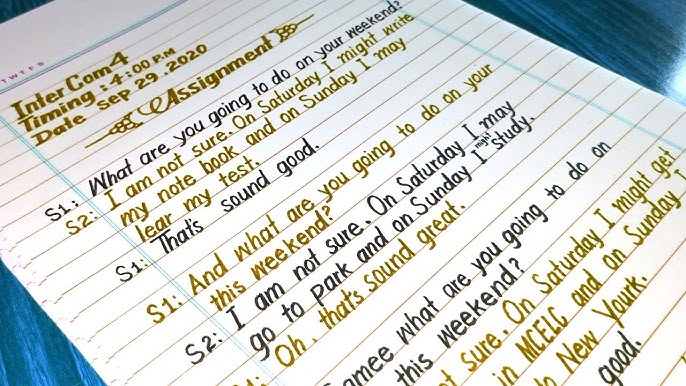 T W T F S
InterCom 4
Timing: 4:00 P.M
Date Sep 29, 2020
Assignment
S1: What are you going to do on your weekend?
S2: I am not sure. On Saturday I might write
my note book and on Sunday I may
lear my test.
S1: That's sound good.
S1: And what are you going to do on your
this weekend?
S2: I am not sure. On Saturday I may
go to park and on Sunday I might study.
Oh, that's sound great.
what are you going to do on
this weekend?
sure. On Saturday I might get
in MCELC and on Sunday I
New Yourk.
good.